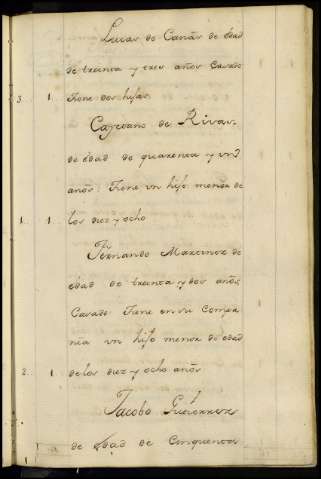 Lucas de Cañas de edad
de treinta y tres años Casado
3. 1 Tiene dos hijas
Cayetano de Rivas
de edad de quarenta y un
años Tiene un hijo menor de
1. 1 los diez y ocho
Fernando Martinez de
edad de treinta y dos años
Casado Tiene en su compa
nia un hijo menor de edad
2. 1 de los diez y ocho años
Jacobo Gutierrez
de edad de Cinquenta